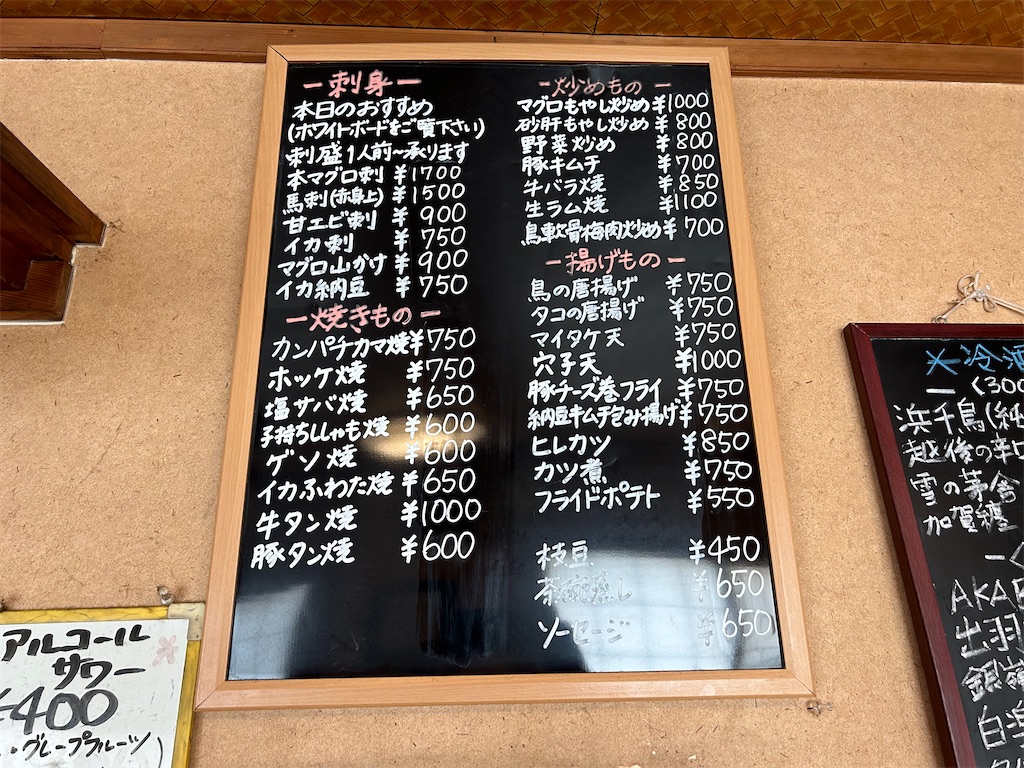 ー刺身ー
本日のおすすめ
(ホワイトボードをご覧下さい)
刺盛1人前〜承ります
本マグロ刺 ¥1700
馬刺(赤身上) ¥1500
甘エビ刺 ¥900
イカ刺 ¥750
マグロ山かけ ¥900
イカ納豆 ¥750
ー焼きものー
カンパチカマ焼 ¥750
ホッケ焼 ¥750
塩サバ焼 ¥650
子持ちししゃも焼 ¥600
ゲソ焼 ¥600
イカふわた焼 ¥650
牛タン焼 ¥1000
豚タン焼 ¥600
ー炒めものー
マグロもやし炒め ¥1000
砂肝もやし炒め ¥800
野菜炒め ¥800
豚キムチ ¥700
牛バラ焼 ¥850
生ラム焼 ¥1100
鳥軟骨梅肉炒め ¥700
ー揚げものー
鳥の唐揚げ ¥750
タコの唐揚げ ¥750
マイタケ天 ¥750
穴子天 ¥1000
豚チーズ巻フライ ¥750
納豆キムチ包み揚げ ¥750
ヒレカツ ¥850
カツ煮 ¥750
フライドポテト ¥550
枝豆 ¥450
茶碗蒸し ¥650
ソーセージ ¥650
アルコール
サワー
¥400
・グレープフルーツ)
冷酒
ー〈300
浜千鳥(純
越後の辛口
雪の茅舎
加賀纏
ー〈
AKAB
出羽
銀嶺
白